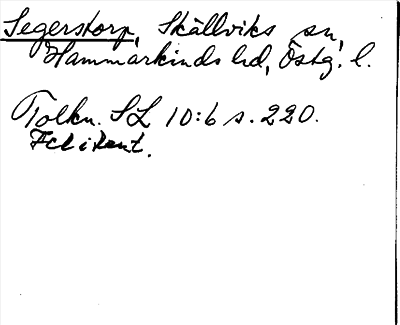 Segerstorp, Skällviks sn,
Hammarkinds hd, Östg. l.
Tolkn. SL 10:6 s. 220.